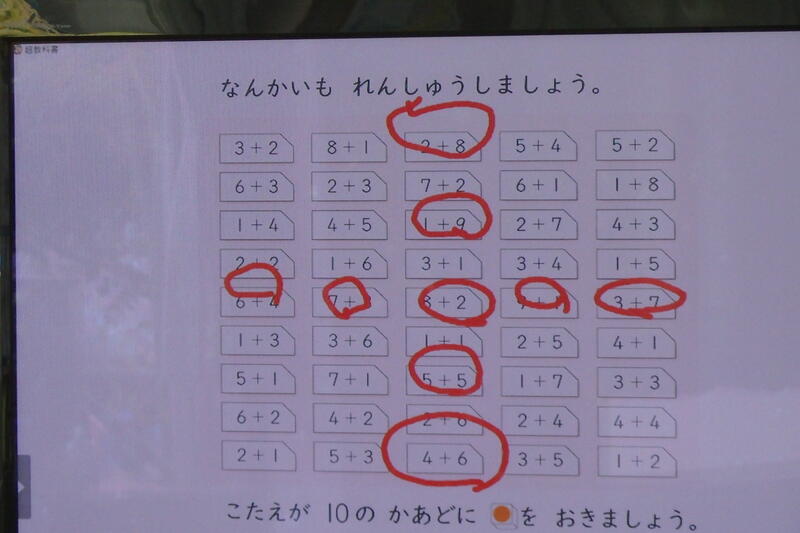 超教科書
なんかいも れんしゅうしましょう。
3+2 8+1 2+8 5+4 5+2
6+3 2+3 7+2 6+1 1+8
1+4 4+5 1+9 2+7 4+3
2+2 1+6 3+1 3+4 1+5
6+4 7+3 8+2 3+7
1+3 3+6 1+1 2+5 4+1
5+1 7+1 5+5 1+7 3+3
6+2 4+2 2+6 2+4 4+4
2+1 5+3 4+6 3+5 1+2
こたえが 10の かあどに を おきましょう。